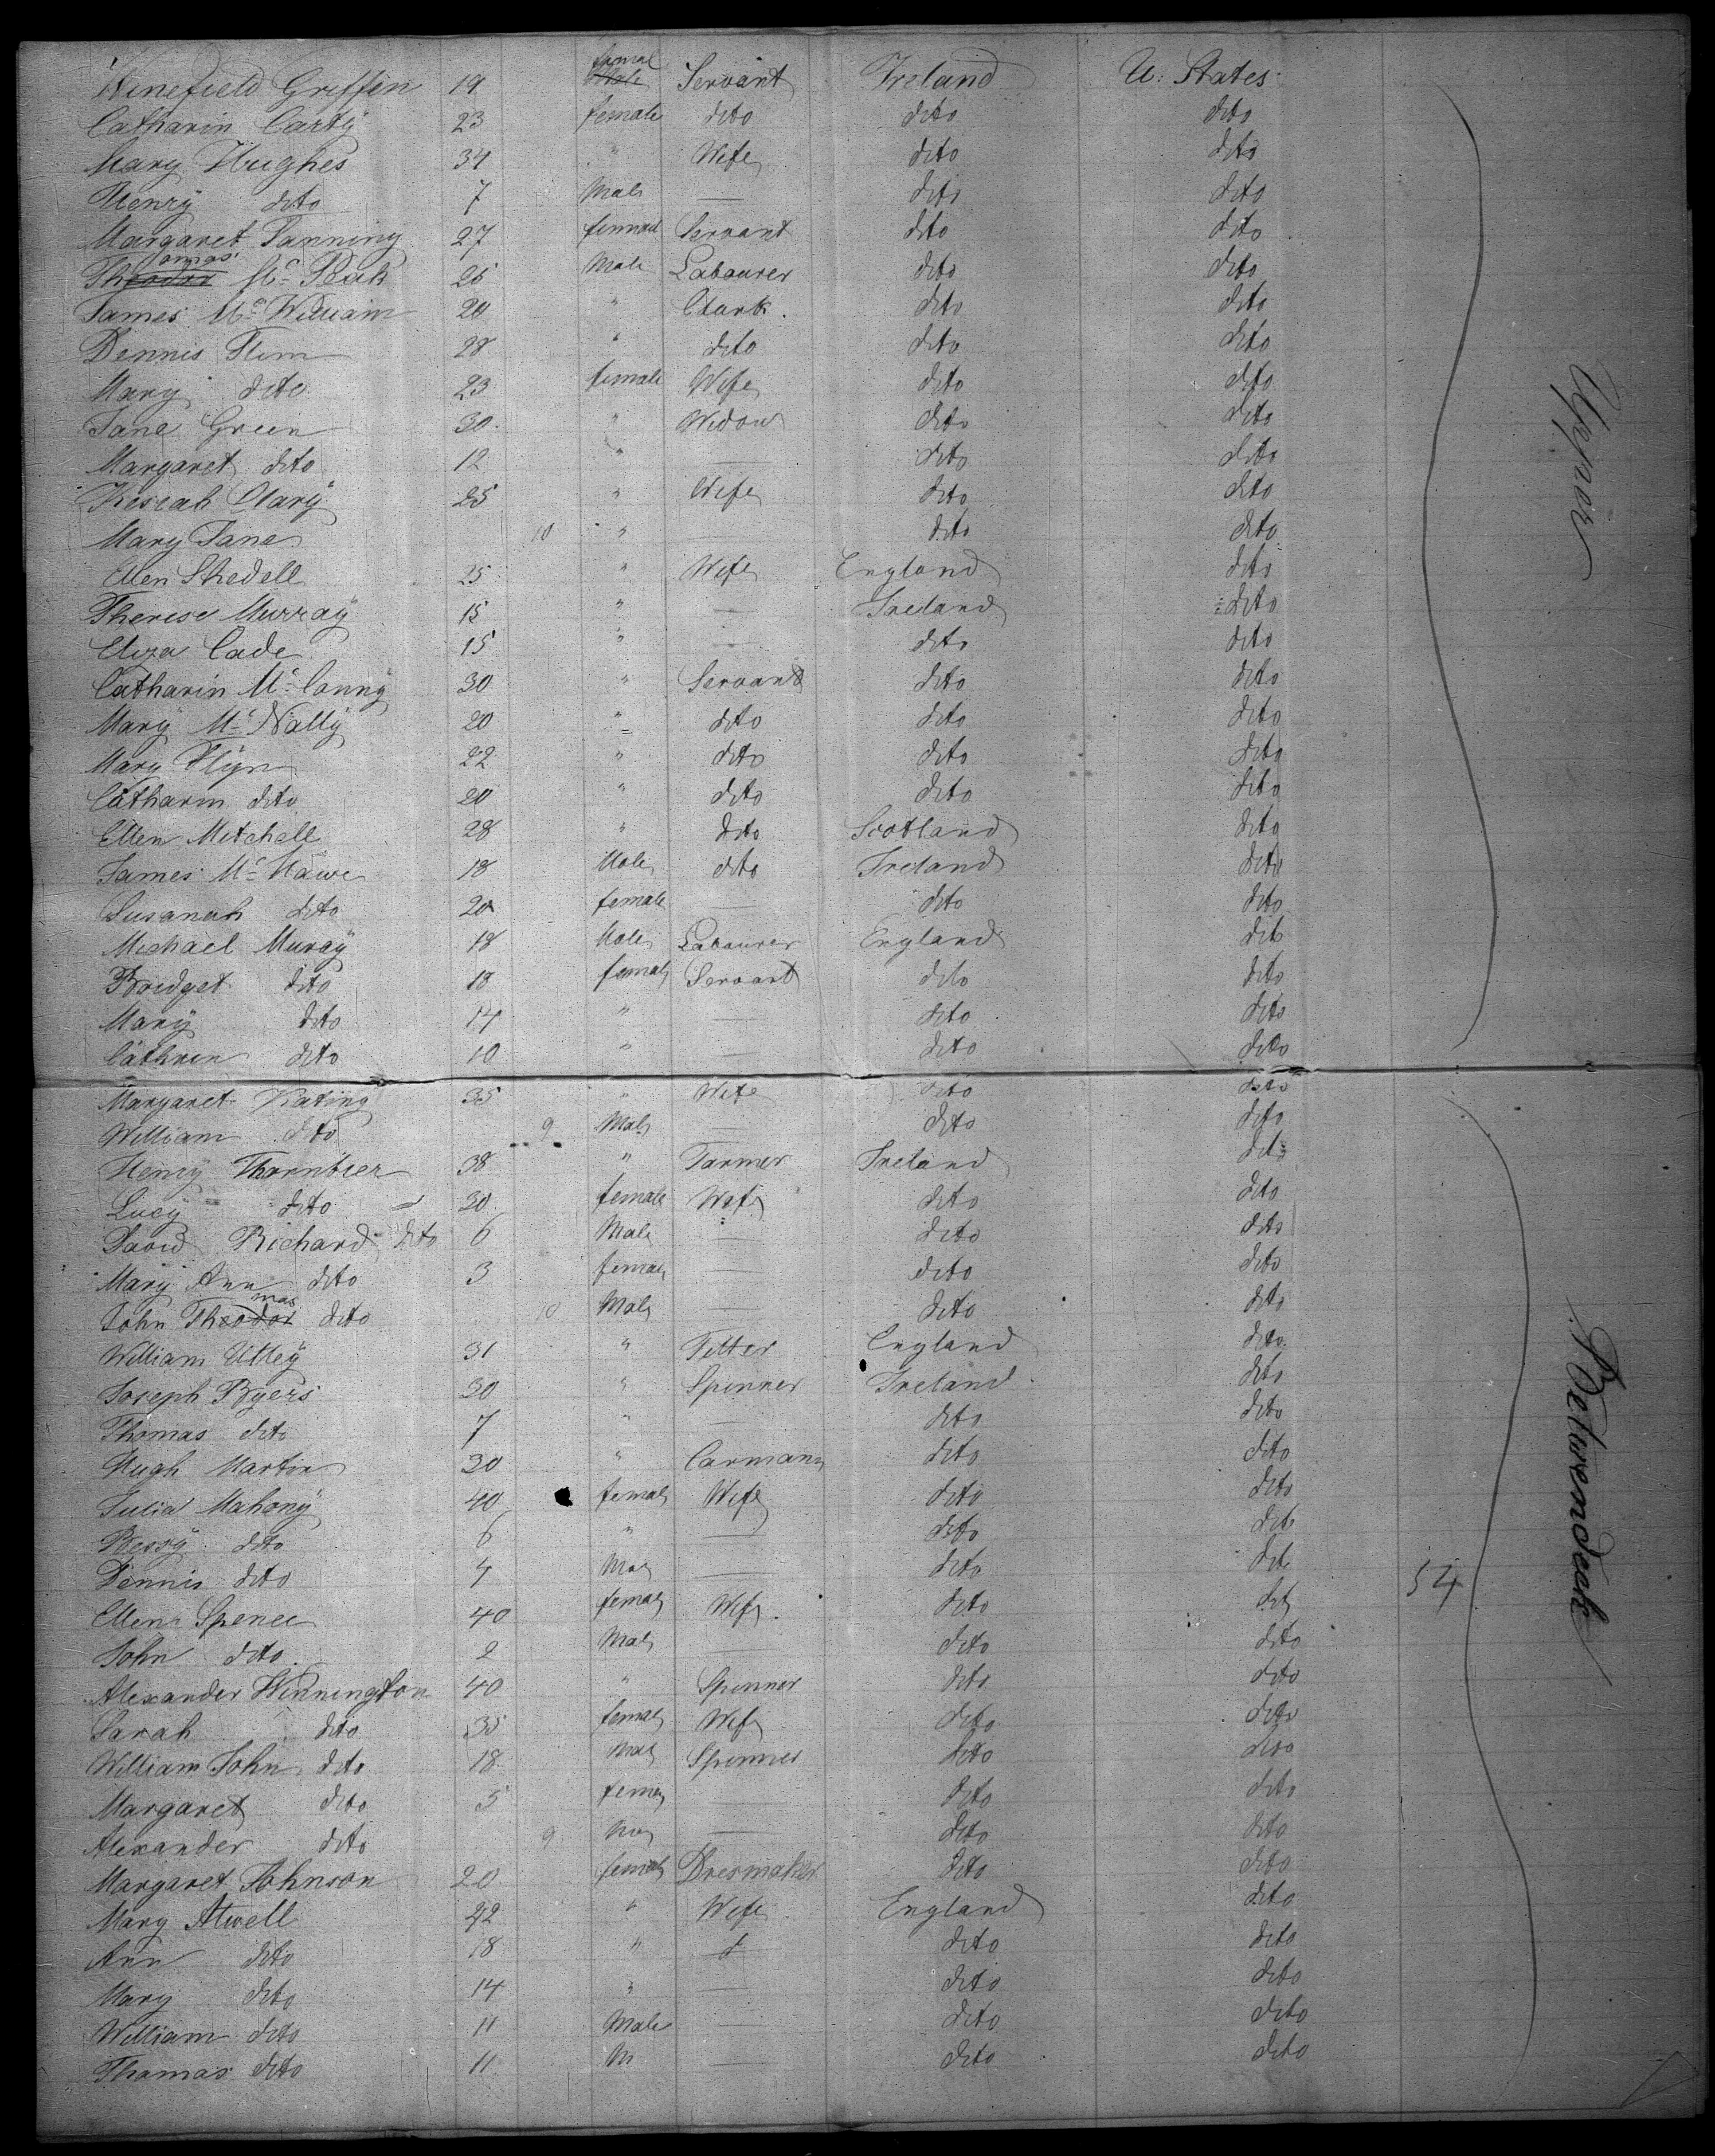 Winefield Griffin 19 femal Male Servant Ireland U. States
Catharin Carty 23 female dito dito dito
Mary Hughes 34 " Wife dito dito
Henry dito 7 Male — dito dito
Margaret Fanning 27 femmal Servant dito dito
Theodor omas Mc 26 Male Labourer dito dito
James Mc William 20 " Clark. dito dito
Dennis Flim 28 " dito dito dito
Mary dito 23 female Wife dito dito
Jane Green 30 " Widow dito dito
Margaret dito 12 " — dito dito
Kesiah Clary 25 " Wife dito dito
Mary Jane 10 " — dito dito
Ellen Shedell 25 " Wife England dito
Therese Murray 15 " — Ireland dito
Eliza Cade 15 " — dito dito
Catharin Mc Canny 30 " Servant dito dito
Mary Mc Nally 20 " dito dito dito
Mary Flyn 22 " dito dito dito
Catharin dito 20 " dito dito dito
Ellen Mitchell 28 " dito Scotland dito
James Mc Hawe 18 Male dito Ireland dito
Susanah dito 20 female — dito dito
Michael Muray 18 Male Labourer England dito
Bridget dito 18 female Servant dito dito
Mary dito 14 " — dito dito
Cathren dito 10 " — dito dito
Uppor
Margaret Kating 35 " Wife dito dito
William dito 9 Male — dito dito
Henry Thornbier 38 " Farmer Ireland dito
Lucy dito 30 female Wife dito dito
David Richard dito 6 Male — dito dito
Mary Ann dito 3 female — dito dito
John Theodor mas dito 10 Male — dito dito
William Utley 31 " Fitter England dito
Joseph Byers 30 " Spinner Ireland dito
Thomas dito 7 " — dito dito
Hugh Martin 30 " Carmann dito dito
Julia Mahony 40 female Wife dito dito
Bessy dito 6 " — dito dito
Dennis dito 4 Male — dito dito 54
Ellen Spence 40 female Wife. dito dito
John dito. 2 Male — dito dito
Alexander Winnington 40 " Spinner dito dito
Sarah dito 35 female Wife dito dito
William John dito 18 male Spinner dito dito
Margaret dito 5 female — dito dito
Alexander dito 9 — dito dito
Margaret Johnson 20 female Dresmaker dito dito
Mary Atwell 42 " Wife England dito
Ann dito 18 " — dito dito
Mary dito 14 " — dito dito
William dito 11 Male — dito dito
Thomas dito 11 M — dito dito
Betwendeck